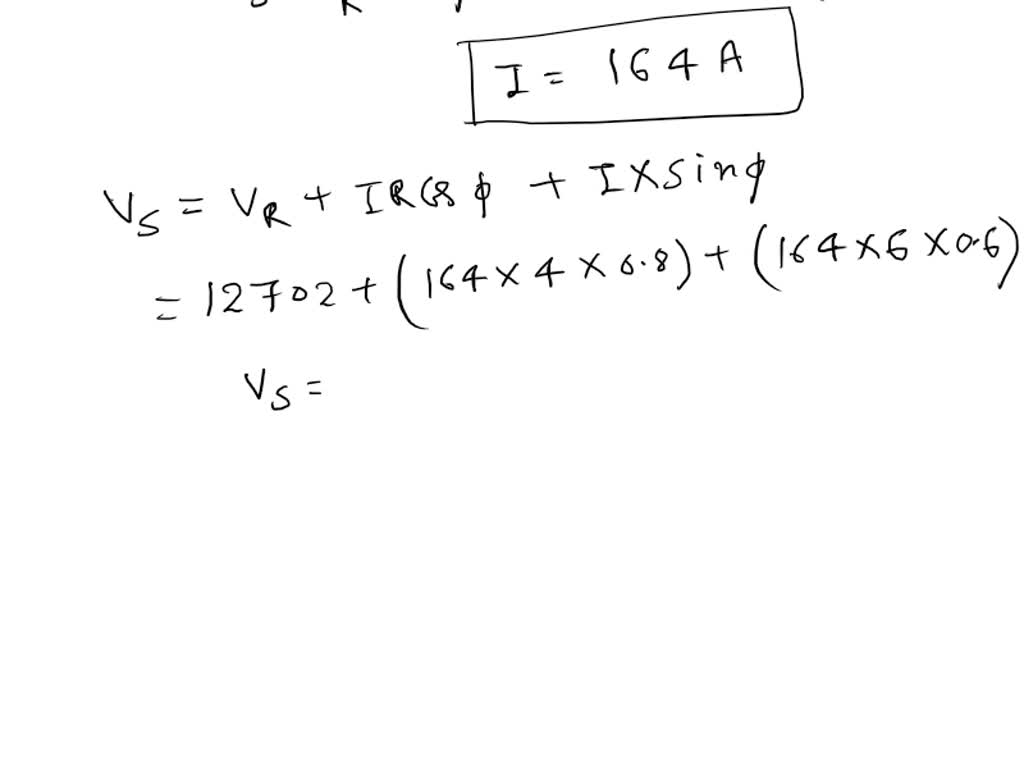 I = 164 A
V_S = V_R + IR cos ϕ + IX sin ϕ
= 12702 + (164 × 4 × 0.8) + (164 × 6 × 0.6)
V_S =